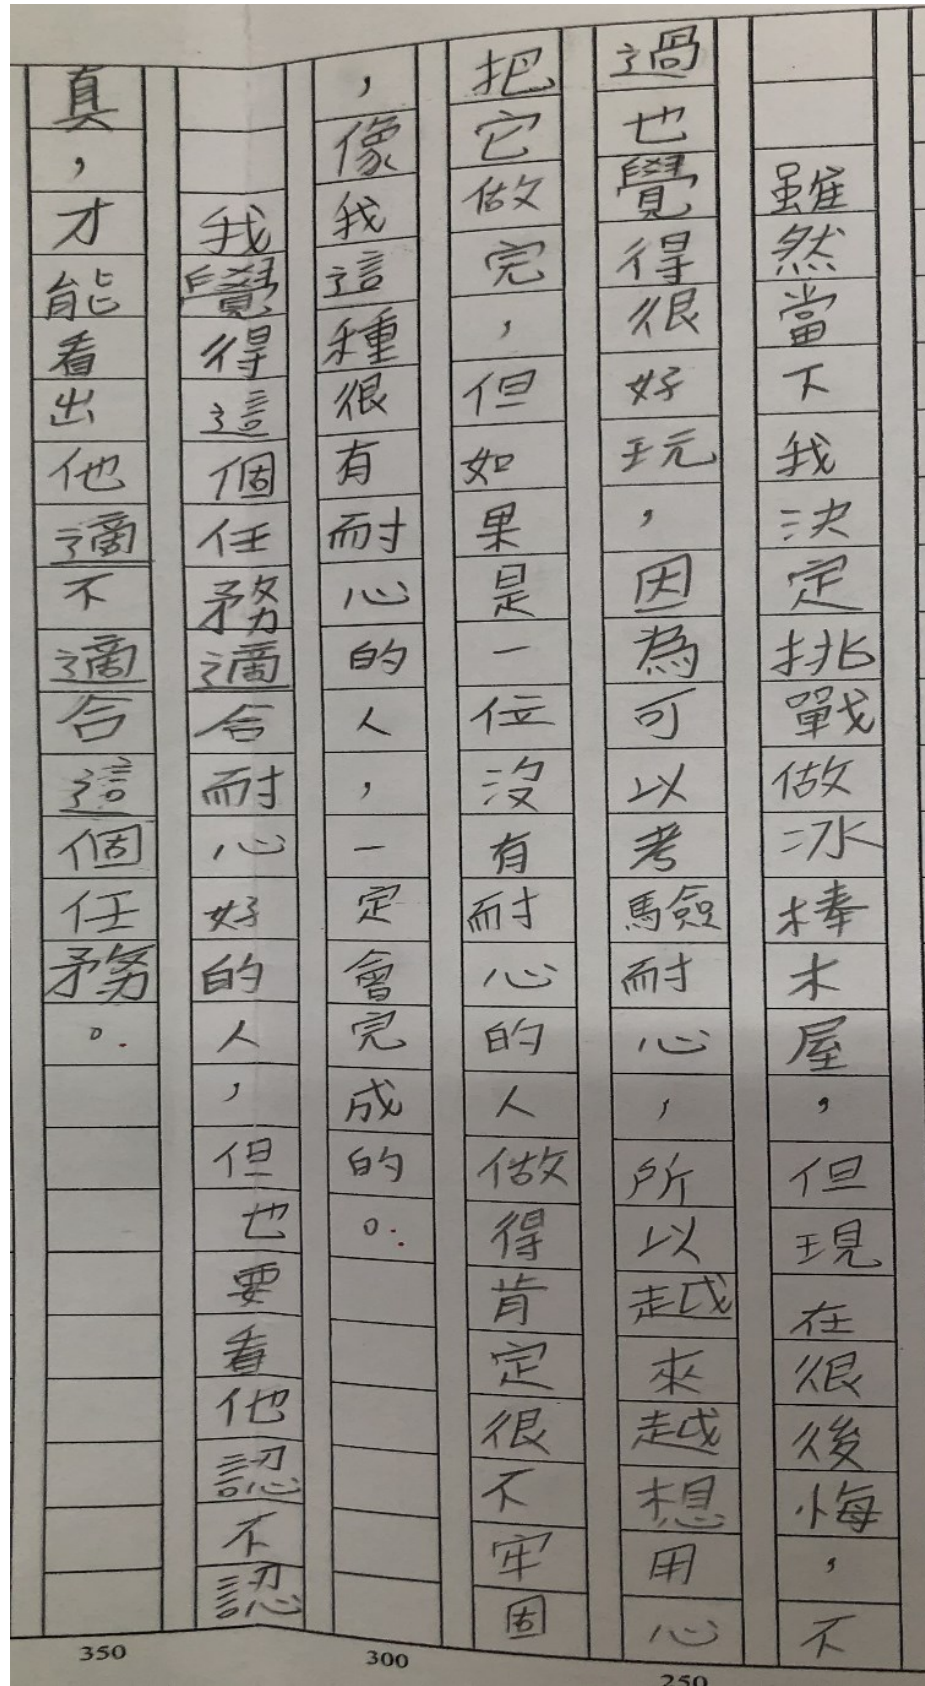 雖然當下我決定挑戰做冰棒木屋，但現在很後悔，不
過也覺得很好玩，因為可以考驗耐心，所以越來越想用心
把它做完，但如果是一位沒有耐心的人做得肯定很不牢固
，像我這種很有耐心的人，一定會完成的。
我覺得這個任務適合耐心好的人，但也要看他認不認
真，才能看出他適不適合這個任務。
250
300
350